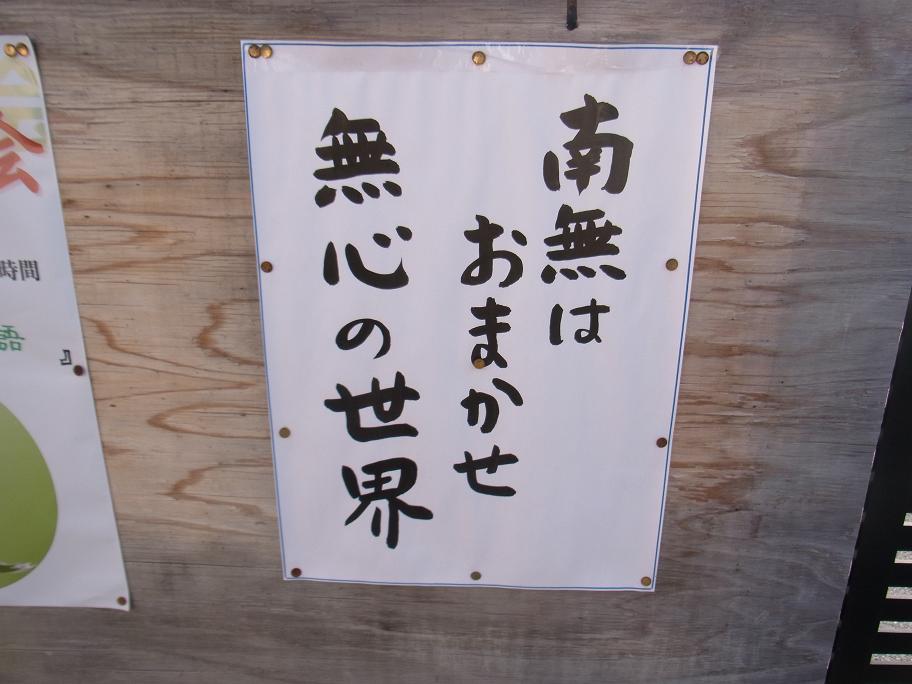 南無は
おまかせ
無心の世界
会
時間
語
』